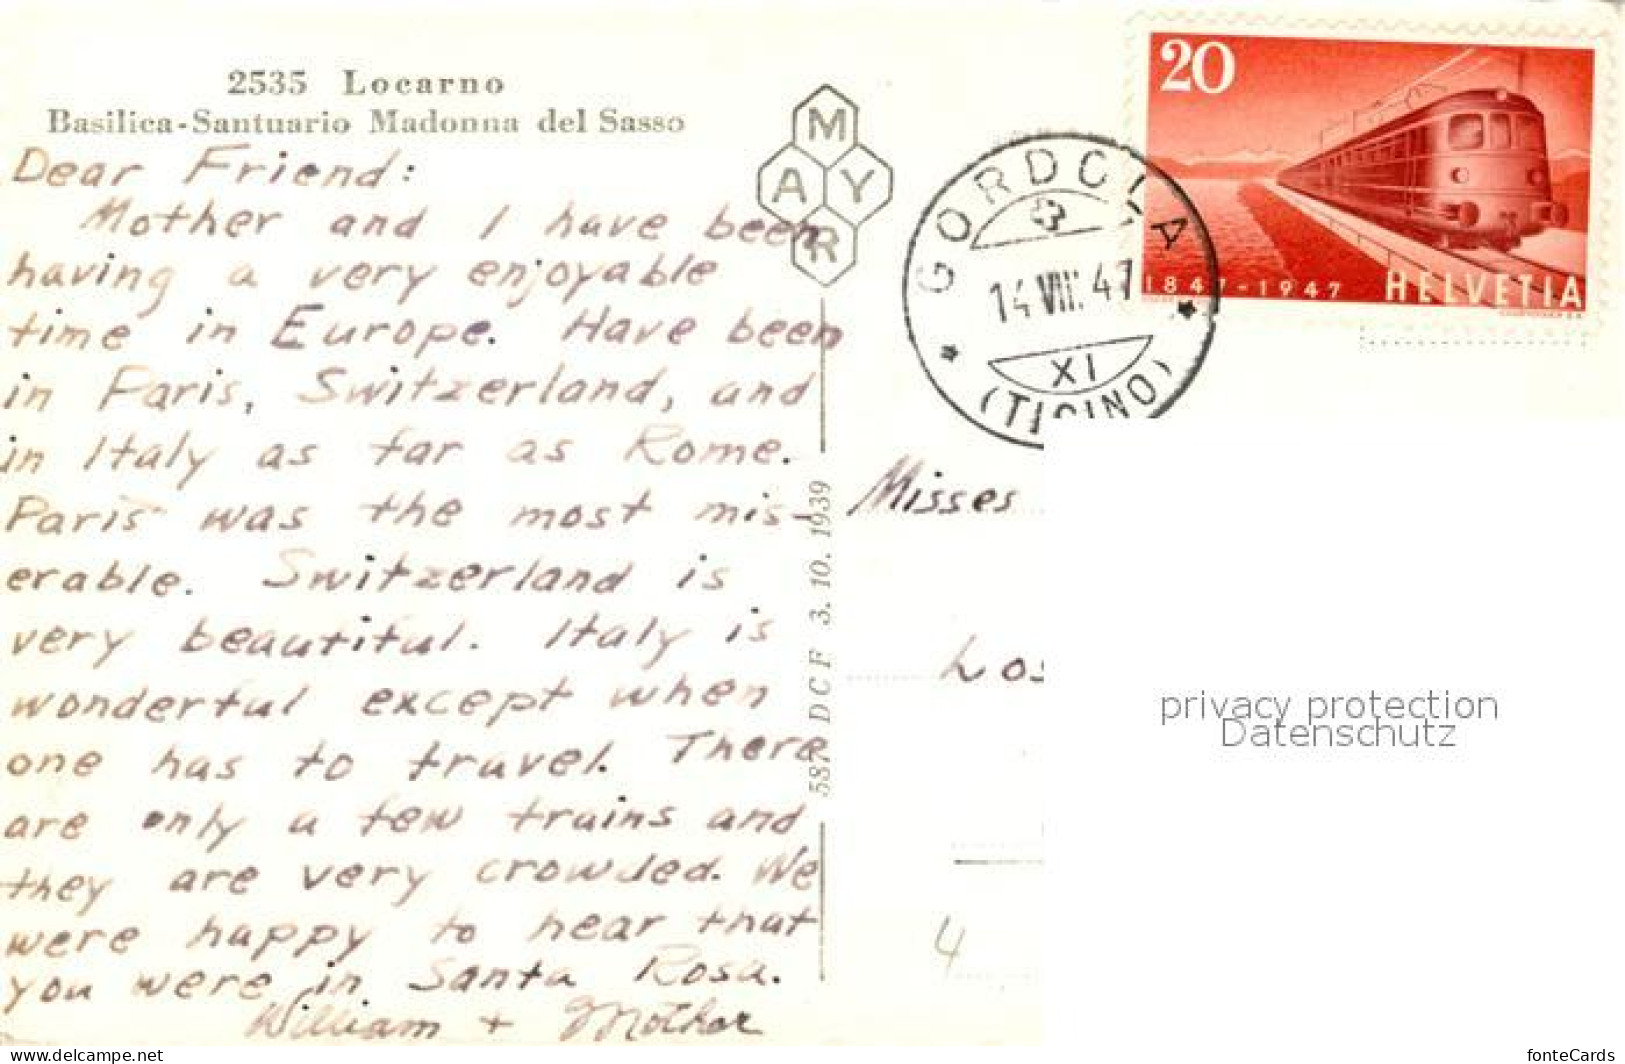 2535 Locarno
Basilica-Santuario Madonna del Sasso
Dear Friend:
Mother and I have been
having a very enjoyable
time in Europe. Have been
in Paris, Switzerland, and
in Italy as far as Rome.
Paris was the most mis-
erable. Switzerland is
very beautiful. Italy is
wonderful except when
one has to travel. There
are only a few trains and
they are very crowded. We
were happy to hear that
you were in Santa Rosa.
William + Mother
MAYR
587 DCF 3. 10. 1939
GORDOLA
14 VIII. 47
XI
(TICINO)
20
1847-1947
HELVETIA
Misses
Los
4
privacy protection
Datenschutz
www.delcampe.net
fonteCards